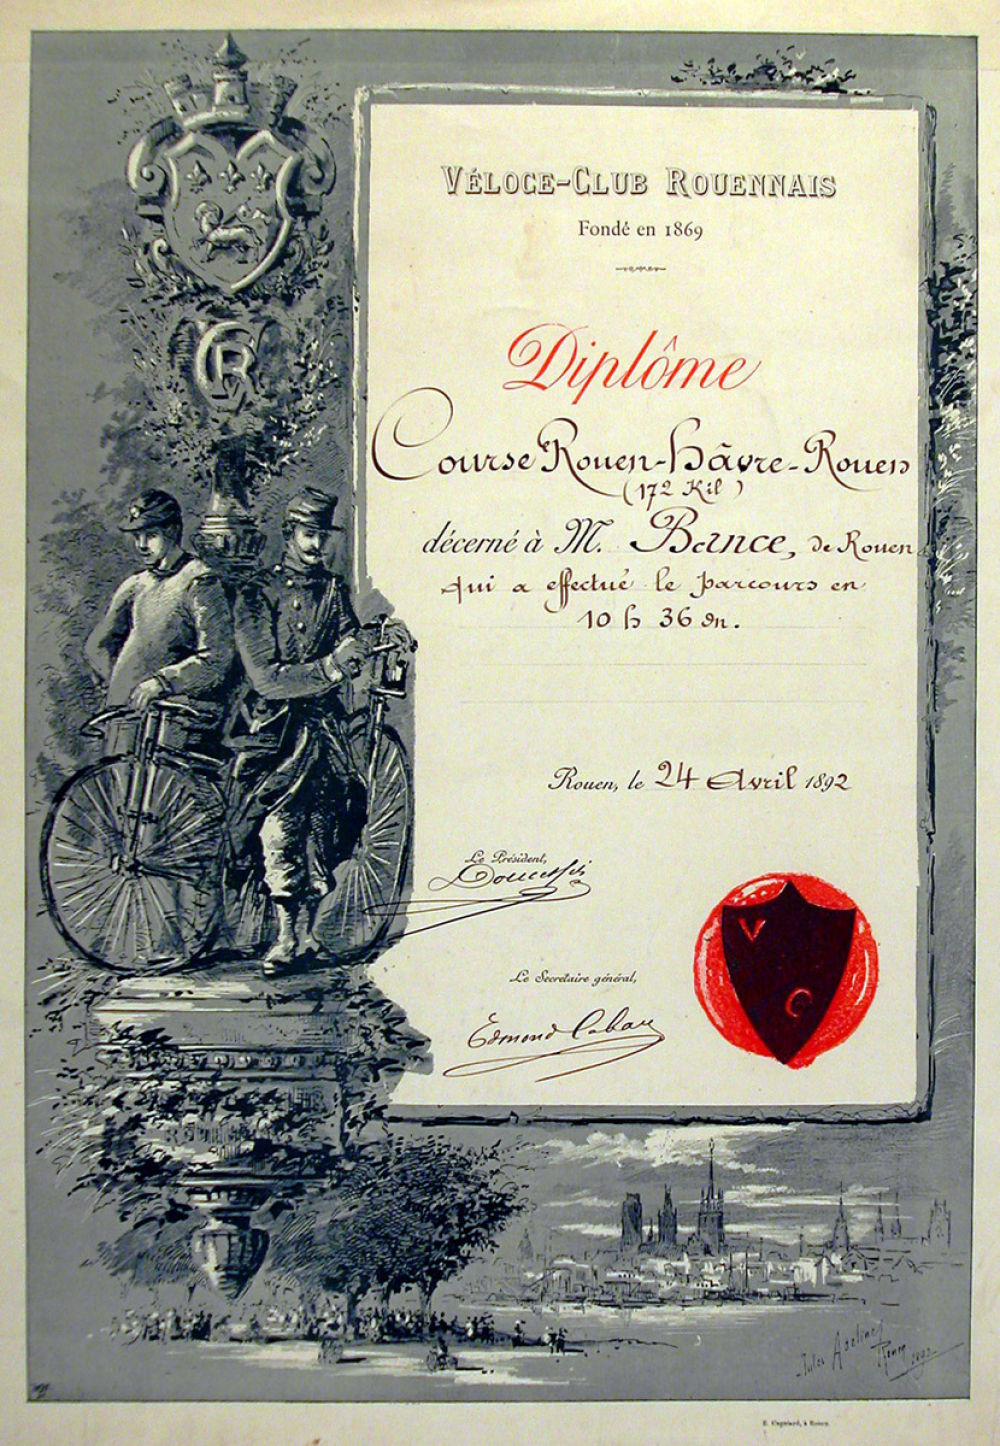 VÉLOCE-CLUB ROUENNAIS
Fondé en 1869
Diplôme
Course Rouen-Hâvre-Rouen
(172 Kil)
décerné à M. Bance, de Rouen
qui a effectué le parcours en
10 h 36 m.
Rouen, le 24 Avril 1892
Le Président,
Le Secrétaire général,
Edmond
V
C
Jules Adeline
Rouen
E. Cagniard, à Rouen